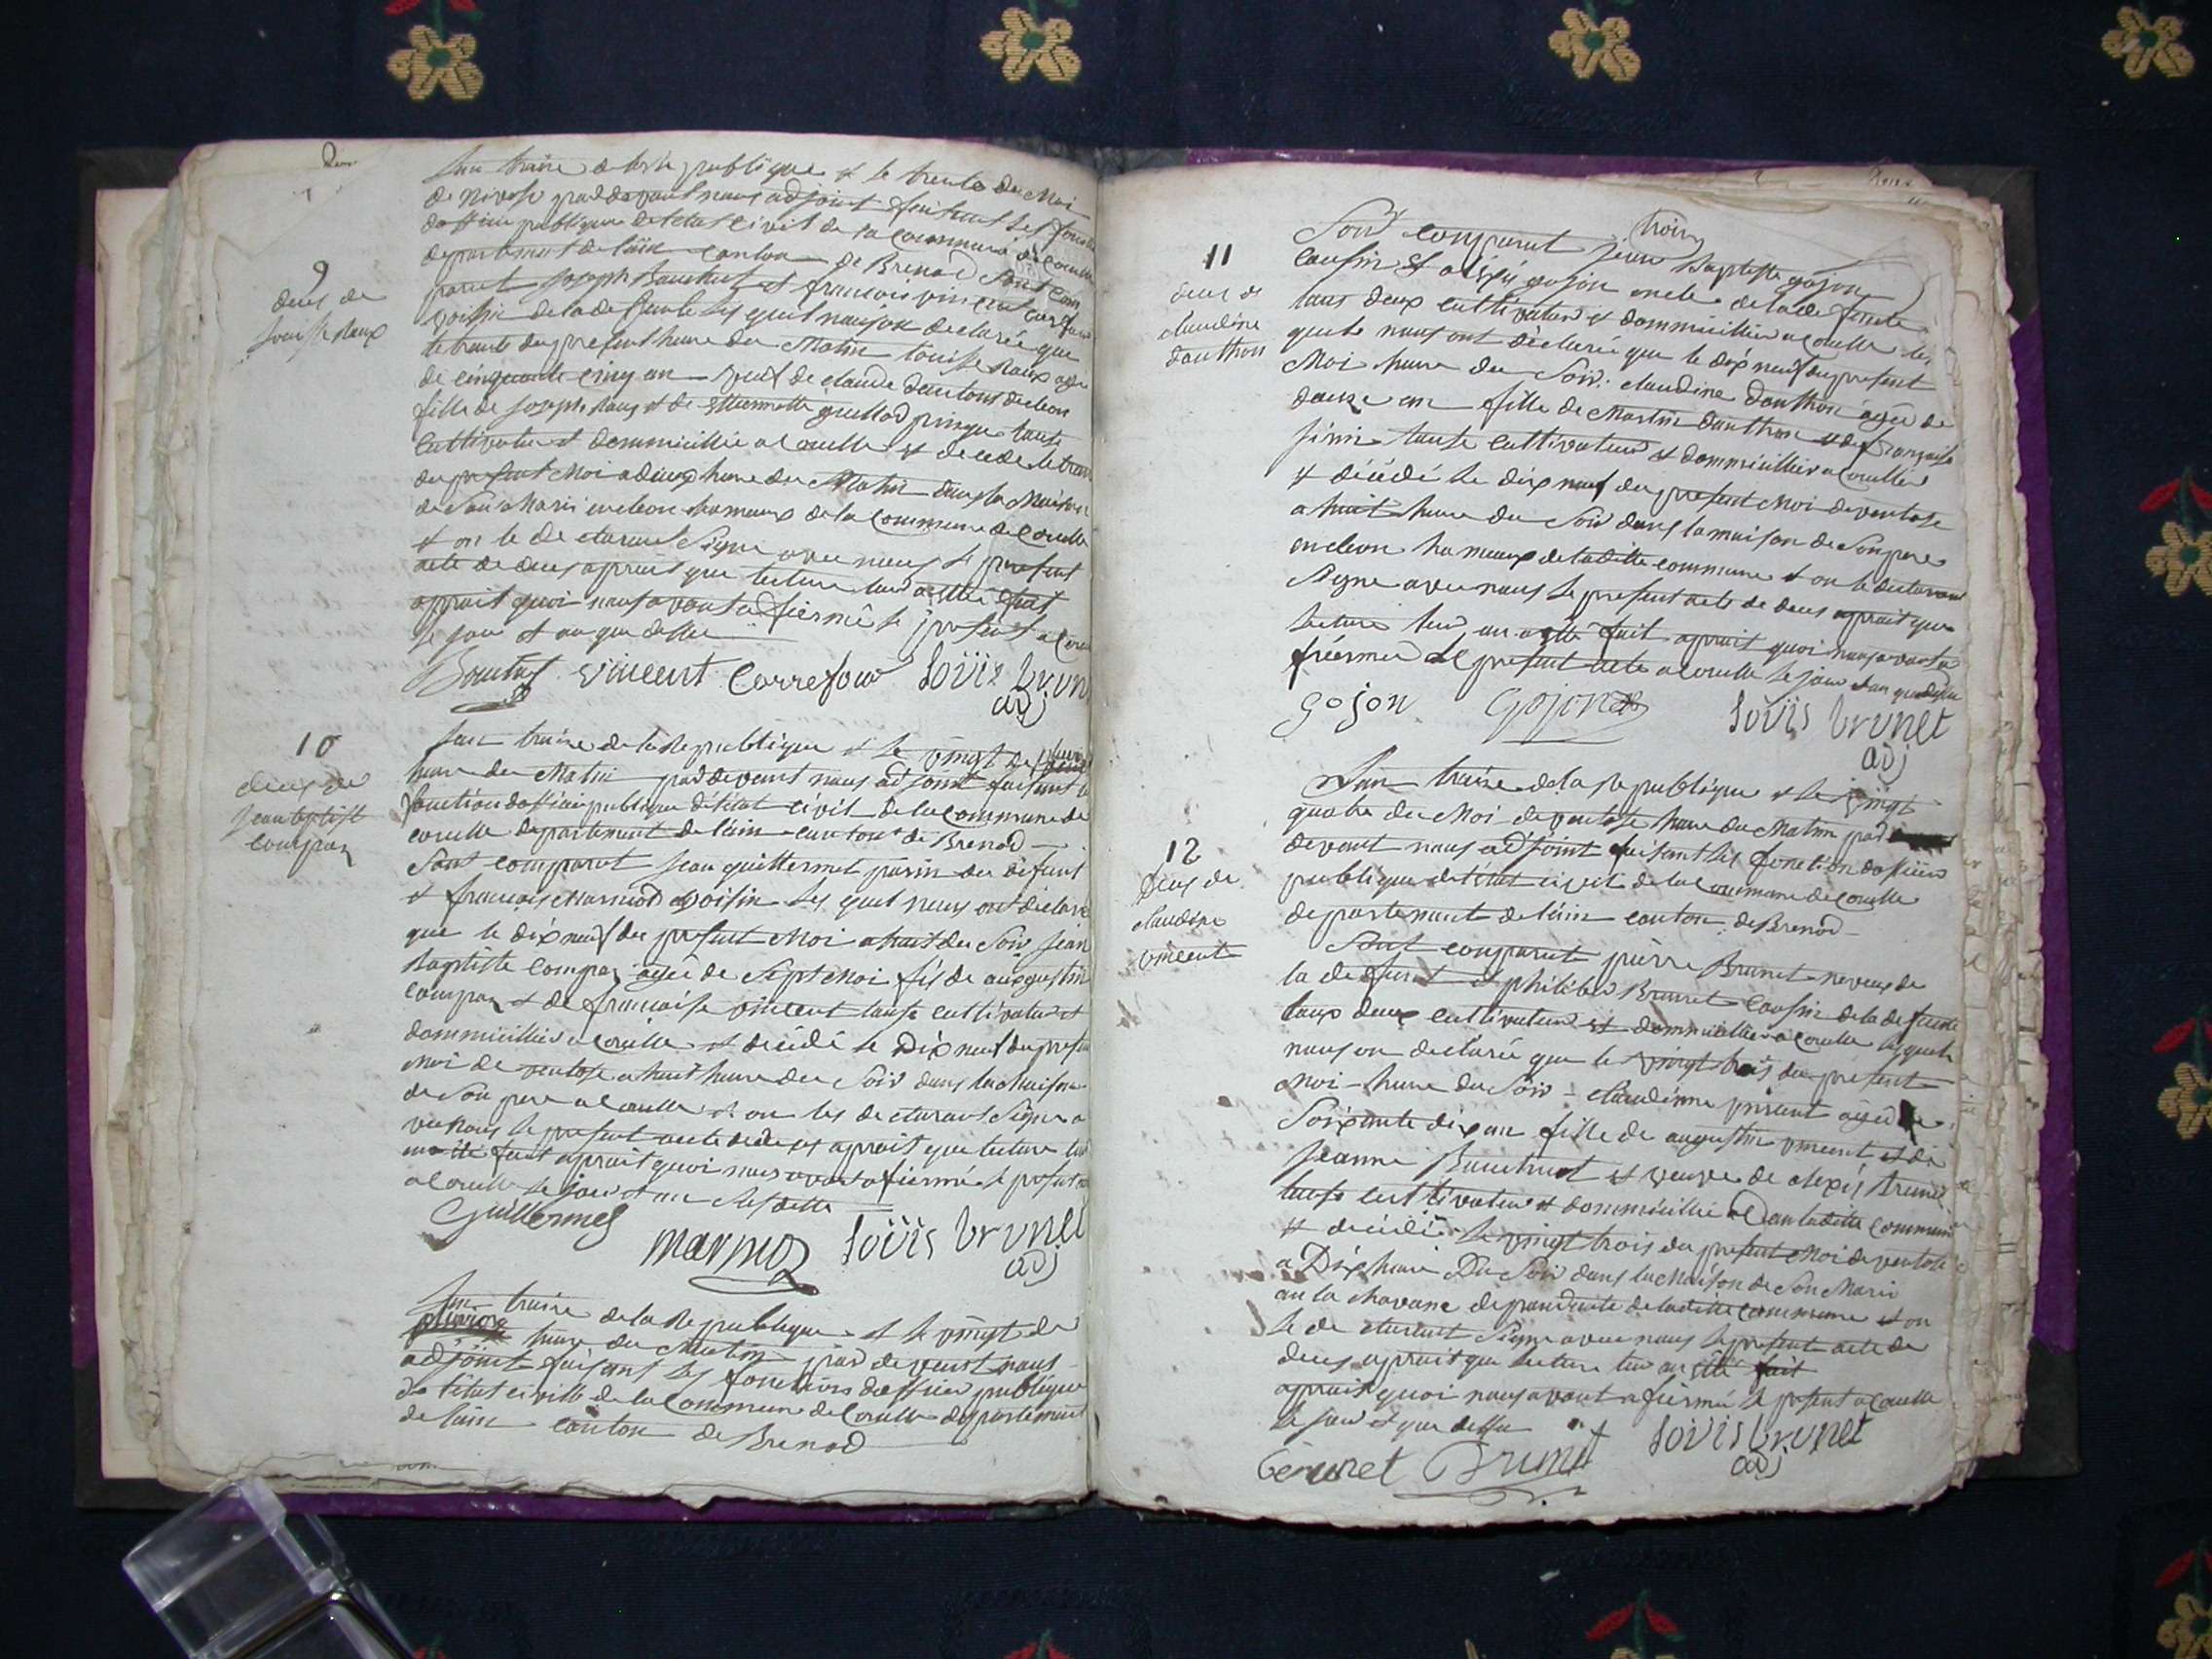 Deux
9
deces de
Louisse Raux
lan traize de la republique et le trente du Moi
de Nivose par devant nous adjoint faisant les fonction
doffiier publique de letat civil de la commune de Corcelle
departement de lain canton de Brenod Sont Com
parut Joseph Bauthut et francois vincent Carrefour
voisin de la defunte les quel nous on declarée que
le trante du present heure du Matin Louisse Raux agée
de cinquante cinq an veuf de claude
fille de Joseph Raux et de guillod pringue toute
cultivateur et dommicillié a Corcelle et decede le trante
du present Moi a deux heure du Matin dans la Maison
de Son Marii en cleon hameaux de la Commune de Corcelle
et on le declarant Signe avec nous le present
acte de deces aprait que lecture leur a etté fait
aprait quoi nous avont adfiermé le present a Corcelle
le jour et an que dessu
Bautut vincent Carrefour loviz brun
adj
10
deces de
Jean baptist
Compan
lan traize de la Republique et le vingt de
heure du Matin par devant nous adjoint faisant les
fonction doffiier publique détat civil de la Commune de
corcelle departement de lain canton de Brenod
Sont comparut Jean guillermet parin du défunt
et francois Marmod voisin les quel nous ont déclaré
que le dix neuf du present Moi a huit du Soir Jean
Baptiste Compan agée de Sept Moi fis de augustin
Compan et de francaise vincent tause cultivateur et
dommicillié a Corcelle et décédé le Dix neuf du present
moi de ventose a huit heure du Soir dans la Maison
de Son pere a Corcelle et on les declarant Signe a
vec nous le present acte de deces aprait que lecture leur
an etté fait aprait quoi nous avont afiermé le present a
a Corcelle le jour et an desse
Guillermet
marmoz lovis brunet
adj
lan traize de la Republique et le vingt de
pluviose heure du Matin par devant nous
adjoint faisant les fonctions doffiier publique
de létat civille de la Commune de Corcelle departement
de lain canton de Brenod
trois
11
deces de
claudine
danthon
Sont comparut jean Baptiste gojon
cousin et aléxis gojon oncle de la de funte
taus deux cultivateur et dommicillié a Corcelle les
quels nous ont déclarée que le dix neuf du present
Moi heure du Soir claudine danthon agée de
danze an fille de Martin danthon et de francaise
jinin tause cultivateur et dommicillié a Corcelle
et décédé le dix neuf du present Moi de ventose
a huit heure du Soir dans la maison de Son pere
en cleon hameaux de la ditte commune et on le declarant
Signe avec nous le present acte de deces aprait que
lecture leur an etté fait aprait quoi nous avont a
fiermé le present acte a Corcelle le jour et an que desu
gojon Gojon lovis brunet
adj
12
Deces de
Claudine
vincent
Lan traize de la Republique et le vingt
quatre du Moi de ventose heure du Matin par
devant nous adjoint faisant les fonction doffiier
publique de létat civil de la Commune de Corcelle
departement de lain canton de Brenod
Sont comparut pierre Brunet neveux de
la defunt et philibert Brunet Cousin de la defunte
taus deux cultivateur et dommicillié a Corcelle les quels
nous on declarée que le vingt trois du present
Moi heure du Soir Claudinne vincent agée de
Soixante dix an fille de augustin vincent et de
Jeanne Bauthut et veuve de alexis Brunet
tause cultivateur et dommicillié dans la ditte commune
et decédée le vingt trois du present Moi de ventose
a Dix heure Du Soir dans la Maison de Son Marii
au la chavane de la ditte Commune et on
le declarant Signe avec nous le present acte de
deces aprait que lecture leur an etté fait
aprait quoi nous avont afiermé le present a Corcelle
le jour et que dessu
brunet Brunet lovis brunet
adj